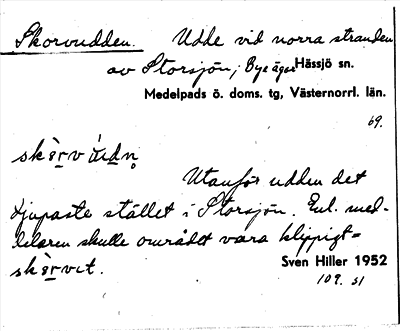 Skorvudden. Udde vid norra stranden
av Storsjön; Bye äger Hässjö sn.
Medelpads ö. doms. tg, Västernorrl. län.
69.
Utanför udden det
djupaste stället i Storsjön. Enl. med-
delaren skulle området vara klippigt =
Sven Hiller 1952
109. 51